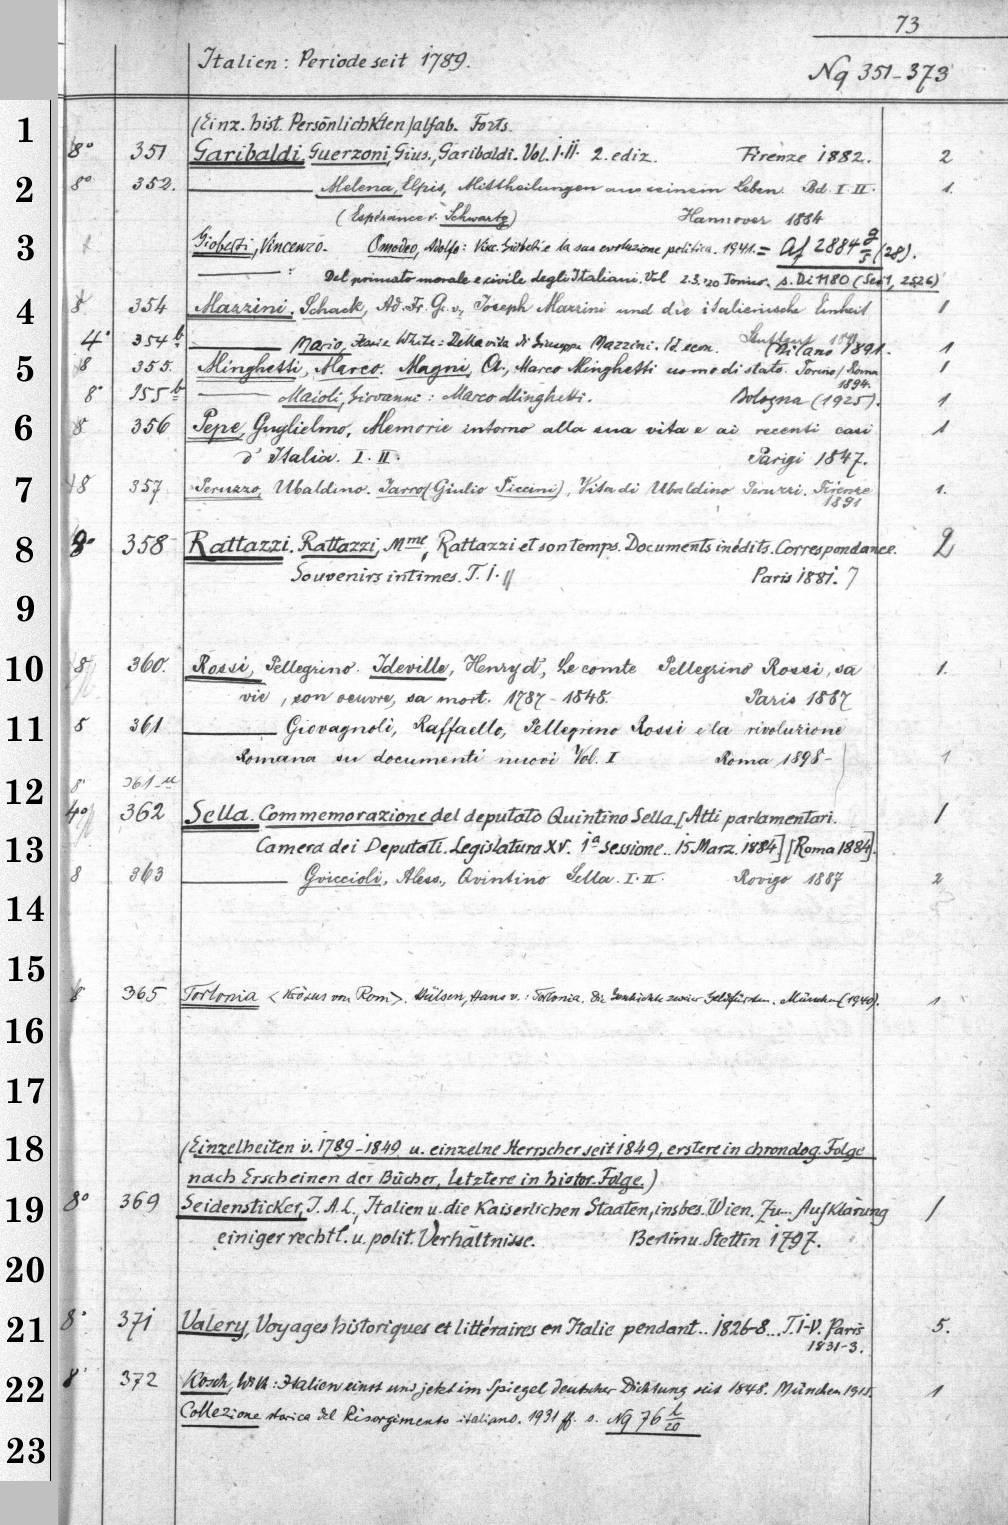 73
Italien: Periode seit 1789.
Nq 351-373
1 (Einz. hist. Persönlichkten) alfab. Forts.
8° 351 Garibaldi. Guerzoni, Gius., Garibaldi. Vol. I·II. 2. ediz. Firenze 1882. 2
2 8° 352. Melena, Elpis, Mittheilungen aus seinem Leben. Bd. I-II. 1.
(Espérance v. Schwartz) Hannover 1884
3 Gioberti, Vincenzo. Omodeo, Adolfo: Vinc. Gioberti e la sua evoluzione politica. 1941. = Af 2884 g/5 (28).
: Del primato morale e civile degli Italiani. Vol 2.3. '20 Torino. s. Di 1180 (Ser 1, 25 26)
4 8 354 Mazzini. Schack, Ad. Fr. Gr. v., Joseph Mazzini und die italienische Einheit 1
Stuttgart 1891
4° 354 b Mario, Jessie White: Della vita di Giuseppe Mazzini. Ed. econ. (Milano 1891. 1
5 8 355. Minghetti, Marco. Magni, A., Marco Minghetti uomo di stato. Torino/Roma 1
1894.
8° 355 b Maioli, Giovanni: Marco Minghetti. Bologna (1925). 1
6 8 356 Pepe, Guglielmo, Memorie intorno alla sua vita e ai recenti casi 1
d'Italia. I-II. Parigi 1847.
7 8 357 Peruzzo, Ubaldino. Jarro (Giulio Piccini), Vita di Ubaldino Peruzzi. Firenze 1.
1891
8 8° 358 Rattazzi. Rattazzi, Mme, Rattazzi et son temps. Documents inédits. Correspondance. 2
Souvenirs intimes. T. I. II Paris 1881. 7
9
10 8 360. Rossi, Pellegrino. Ideville, Henry d', Le comte Pellegrino Rossi, sa 1.
vie, son oeuvre, sa mort. 1787-1848. Paris 1887
11 8 361 Giovagnoli, Raffaello, Pellegrino Rossi e la rivoluzione
Romana su documenti nuovi Vol. I Roma 1898- 1
12 8° 361-a
4° 362 Sella. Commemorazione del deputato Quintino Sella. [Atti parlamentari. 1
13 Camera dei Deputati. Legislatura XV. 1a Sessione.. 15 Marz. 1884] [Roma 1884].
8 363 Guiccioli, Aless., Quintino Sella. I-II. Rovigo 1887 2
14
15
8 365 Torlonia <Krösus von Rom>. Hülsen, Hans v.: Torlonia. Die Geschichte zweier Geldfürsten. München (1940). 1
16
17
18 (Einzelheiten v. 1789-1849 u. einzelne Herrscher seit 1849, erstere in chronolog. Folge
nach Erscheinen der Bücher, letztere in histor. Folge.)
19 8° 369 Seidensticker, J. A. L., Italien u. die Kaiserlichen Staaten, insbes. Wien. Zu... Aufklärung 1
einiger rechtl. u. polit. Verhältnisse. Berlin u. Stettin 1797.
20
21 8° 371 Valery, Voyages historiques et littéraires en Italie pendant.. 1826-8... T. I-V. Paris 5.
1831-3.
22 8° 372 Kosch, Wilh: Italien einst und jetzt im Spiegel deutscher Dichtung seit 1848. München 1915. 1
Collezione storica del Risorgimento italiano. 1931 ff. s. Nq 76 l/20
23